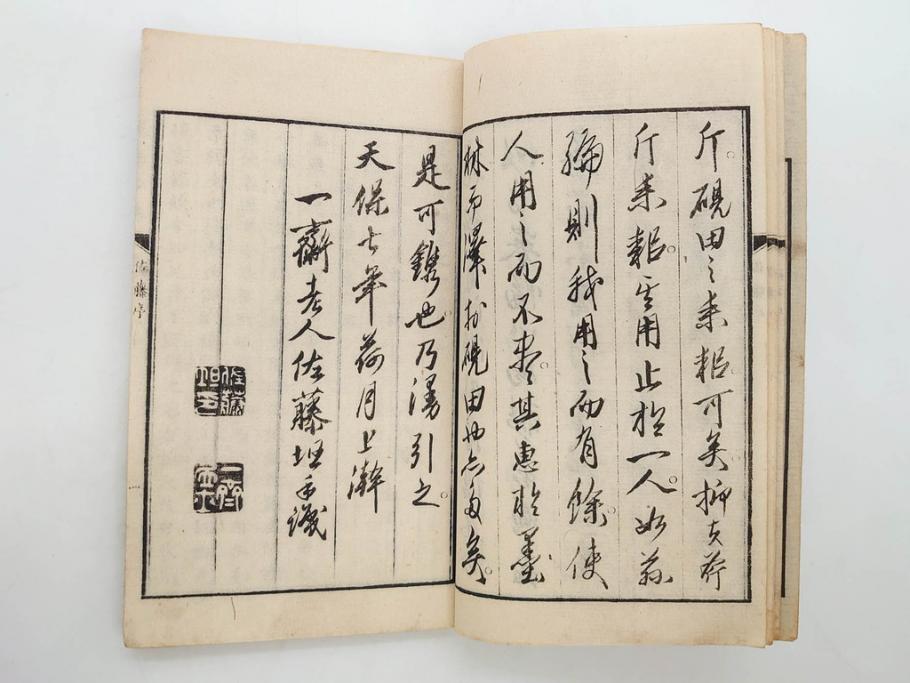 斤。硯田之耒耜可矣。抑夫斧
斤耒耜。其用止於一人。如茲
編則我用之而有餘。使
人用之而不盡。其惠於墨
林而澤於硯田也亦多矣。
是可鐫也。乃漫引之。
天保七年荷月上澣
一齋老人佐藤坦手識
佐藤坦印
佐藤序